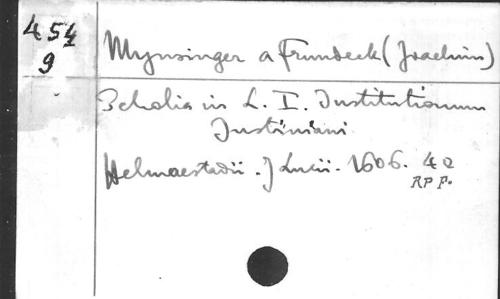 454
9
Mynsinger a Frundeck (Joachim)
Scholia in L. I. Institutionum
Justiniani
Helmaestadii. J Lucii. 1606. 4o
RP F.